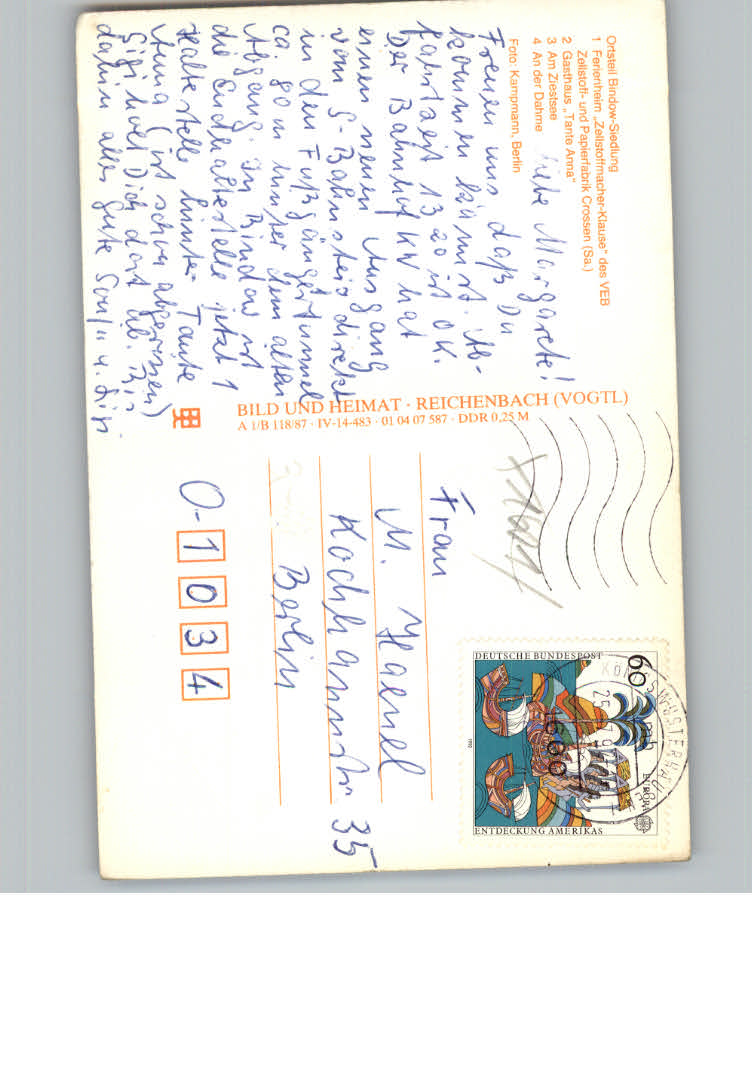 Ortsteil Bindow-Siedlung
1 Ferienheim „Zellstoffmacher-Klause“ des VEB
Zellstoff- und Papierfabrik Crossen (Sa.)
2 Gasthaus „Tante Anna“
3 Am Ziestsee
4 An der Dahme
Foto: Kampmann, Berlin
Liebe Margarete!
Freuen uns daß Du
kommen kannst. Ab-
fahrtzeit 13 20 ist O.K.
Der Bahnhof KW hat
einen neuen Ausgang
vom S-Bahnsteig direkt
in den Fußgängertunnel
ca. 90 m hinter dem alten
Abgang. In Bindow ist
die Endhaltestelle jetzt 1
Haltestelle hinter Tante
Anna (ist schon abgerissen)
Gigi holt Dich dort ab. Bis
dahin alles Gute
BILD UND HEIMAT · REICHENBACH (VOGTL)
A 1/B 118/87 · IV-14-483 · 01 04 07 587 · DDR 0,25 M
Frau
M. Haenel
Kochhannstr 35
Berlin
O-1034
DEUTSCHE BUNDESPOST
60
EUROPA
1992
ENTDECKUNG AMERIKAS
1600